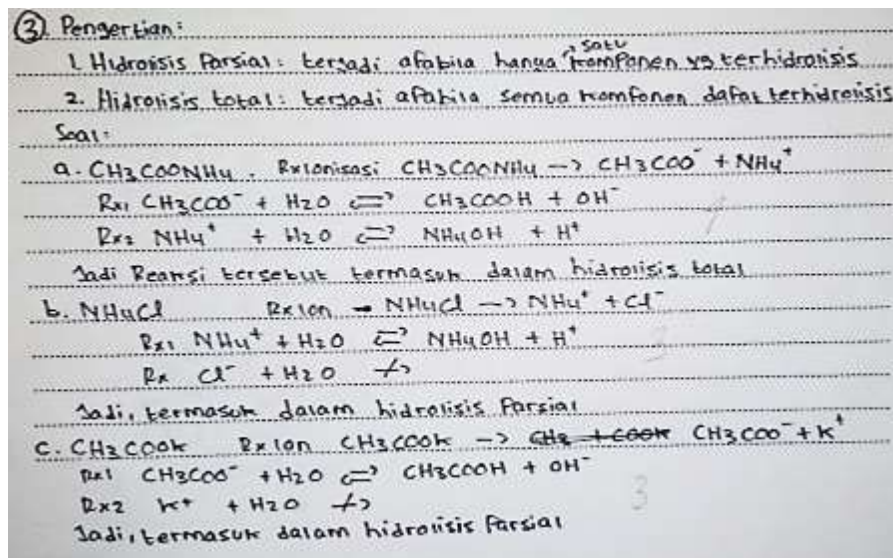 ③. Pengertian:
1. Hidrolisis Parsial: terjadi afabila hanya satu komponen yg terhidrolisis
2. Hidrolisis total: terjadi afabila semua komfonen dafat terhidrolisis
Soal:
a. CH3COONH4. Rx ionisasi CH3COONH4 -> CH3COO⁻ + NH4⁺
Rx1 CH3COO⁻ + H2O ⇌ CH3COOH + OH⁻
Rx2 NH4⁺ + H2O ⇌ NH4OH + H⁺
4
Jadi Reaksi tersebut termasuk dalam hidrolisis total
b. NH4Cl Rx ion → NH4Cl -> NH4⁺ + Cl⁻
Rx1 NH4⁺ + H2O ⇌ NH4OH + H⁺
3
Rx Cl⁻ + H2O ↛
Jadi, termasuk dalam hidrolisis Parsial
C. CH3COOK Rx ion CH3COOK -> CH3COO⁻ + K⁺
Rx1 CH3COO⁻ + H2O ⇌ CH3COOH + OH⁻
Rx2 K⁺ + H2O ↛
3
Jadi, termasuk dalam hidrolisis Parsial